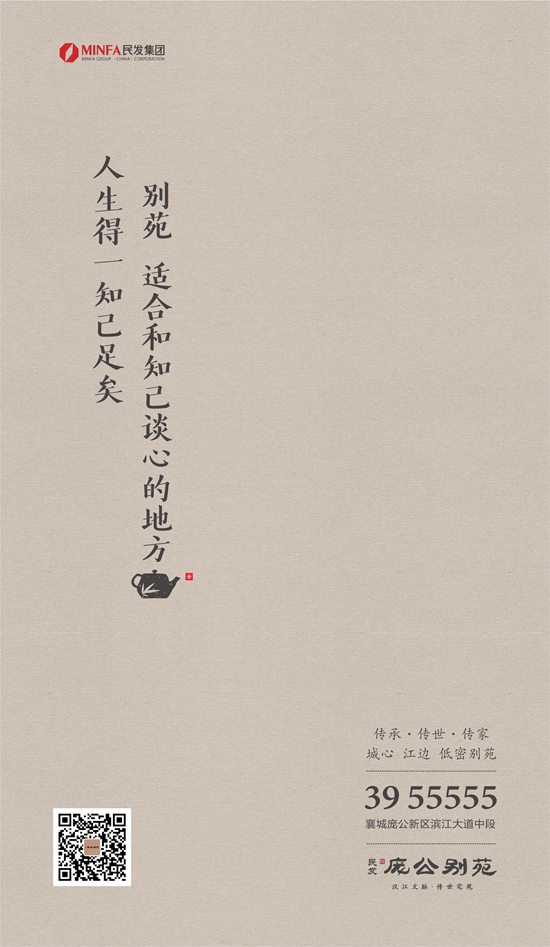 MINFA民发集团
MINFA GROUP (CHINA) CORPORATION
别苑 适合和知己谈心的地方
人生得一知己足矣
传承·传世·传家
城心 江边 低密别苑
39 55555
襄城庞公新区滨江大道中段
民发 庞公别苑
汉江文脉·传世宅苑